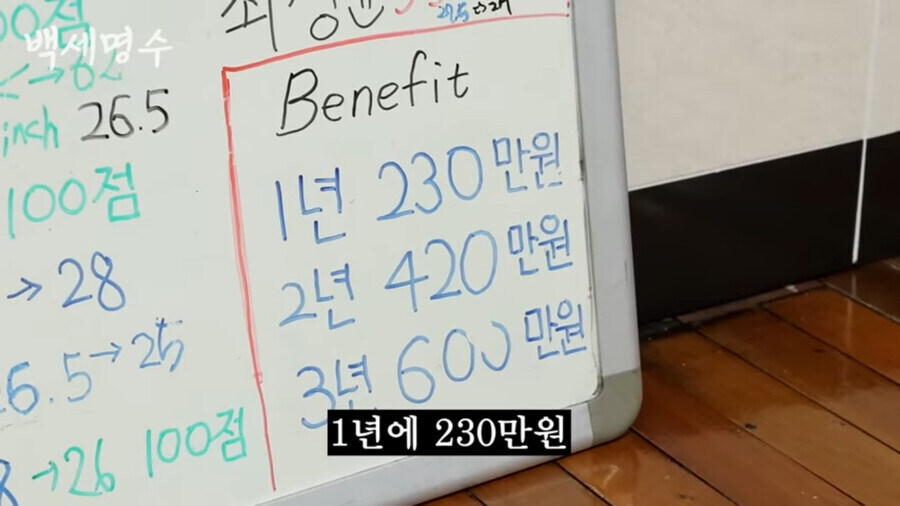 00점
백세명수
최
27.5→27
→62
inch 26.5
100점
→28
6.5→25
→26 100점
Benefit
1년 230만원
2년 420만원
3년 600만원
1년에 230만원